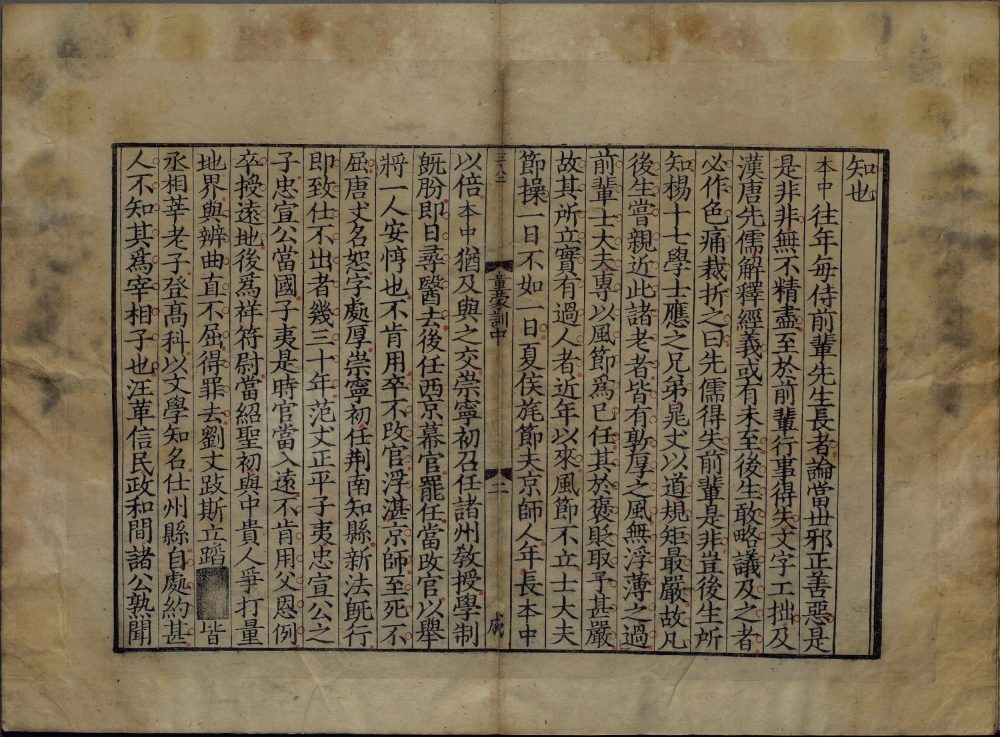 知也
本中往年每侍前輩先生長者論當世邪正善惡是
是非非無不精盡至於前輩行事得失文字工拙及
漢唐先儒解釋經義或有未至後生敢略議及之者
必作色痛裁折之曰先儒得失前輩是非豈後生所
知楊十七學士應之兄弟晁丈以道規矩最嚴故凡
後生嘗親近此諸老者皆有敦厚之風無浮薄之過
前輩士大夫專以風節為已任其於褒貶取予甚嚴
故其所立實有過人者近年以來風節不立士大夫
節操一日不如一日夏侯旄節夫京師人年長本中
童蒙訓中
二
以倍本中猶及與之交崇寧初召任諸州教授學制
既朌即日尋醫去後任西京幕官罷任當改官以舉
將一人安惇也不肯用卒不改官浮湛京師至死不
屈唐丈名恕字處厚崇寧初任荆南知縣新法既行
即致仕不出者幾三十年范丈正平子夷忠宣公之
子忠宣公當國子夷是時官當入遠不肯用父恩例
卒授遠地後為祥符尉當紹聖初與中貴人爭打量
地界與辨曲直不屈得罪去劉丈跂斯立蹈皆
丞相莘老子登髙科以文學知名仕州縣自處約甚
人不知其爲宰相子也汪革信民政和間諸公熟聞